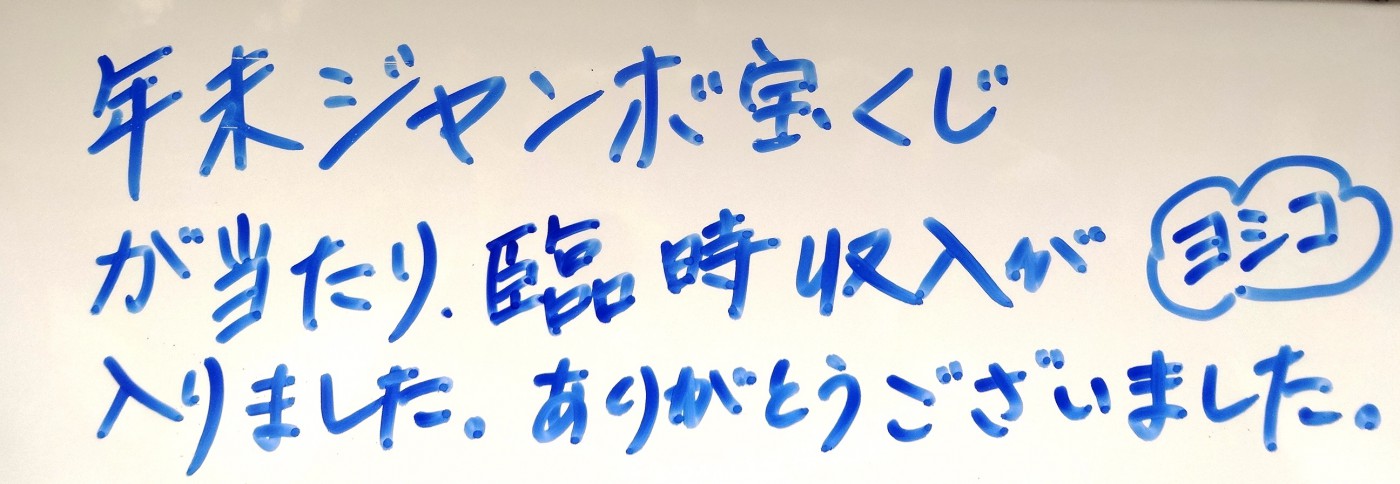 年末ジャンボ宝くじ
が当たり、臨時収入が
ヨシコ
入りました。ありがとうございました。